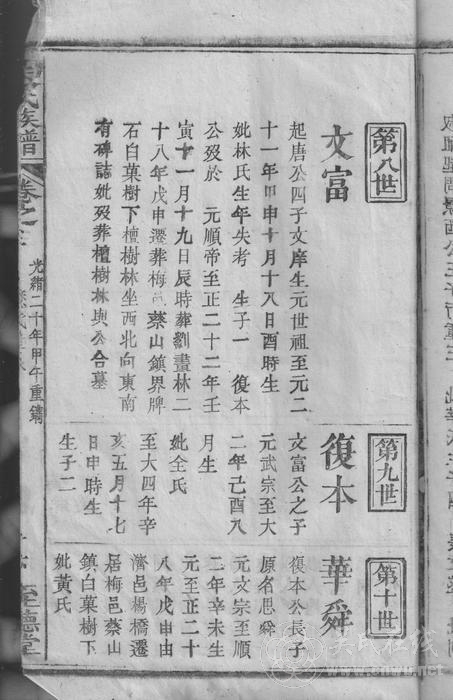 第八世
文富
起唐公四子文庠生元世祖至元二
十一年甲申十月十八日酉時生
妣林氏生年失考 生子一 復本
公歿於 元順帝至正二十二年壬
寅十一月十九日辰時葬劉畫林二
十八年戊申遷葬梅邑蔡山鎮界牌
石白菓樹下檀樹林坐西北向東南
有碑誌妣歿葬檀樹林與公合墓
第九世
復本
文富公之子
元武宗至大
二年己酉八
月生
妣全氏
至大四年辛
亥五月十七
日申時生
生子二
第十世
華舜
復本公長子
原名思舜
元文宗至順
二年辛未生
元至正二十
八年戊申由
濟邑楊橋遷
居梅邑蔡山
鎮白菓樹下
妣黃氏
氏族譜
卷之
光緒二十年甲午重鐫
至德堂
吳氏在线